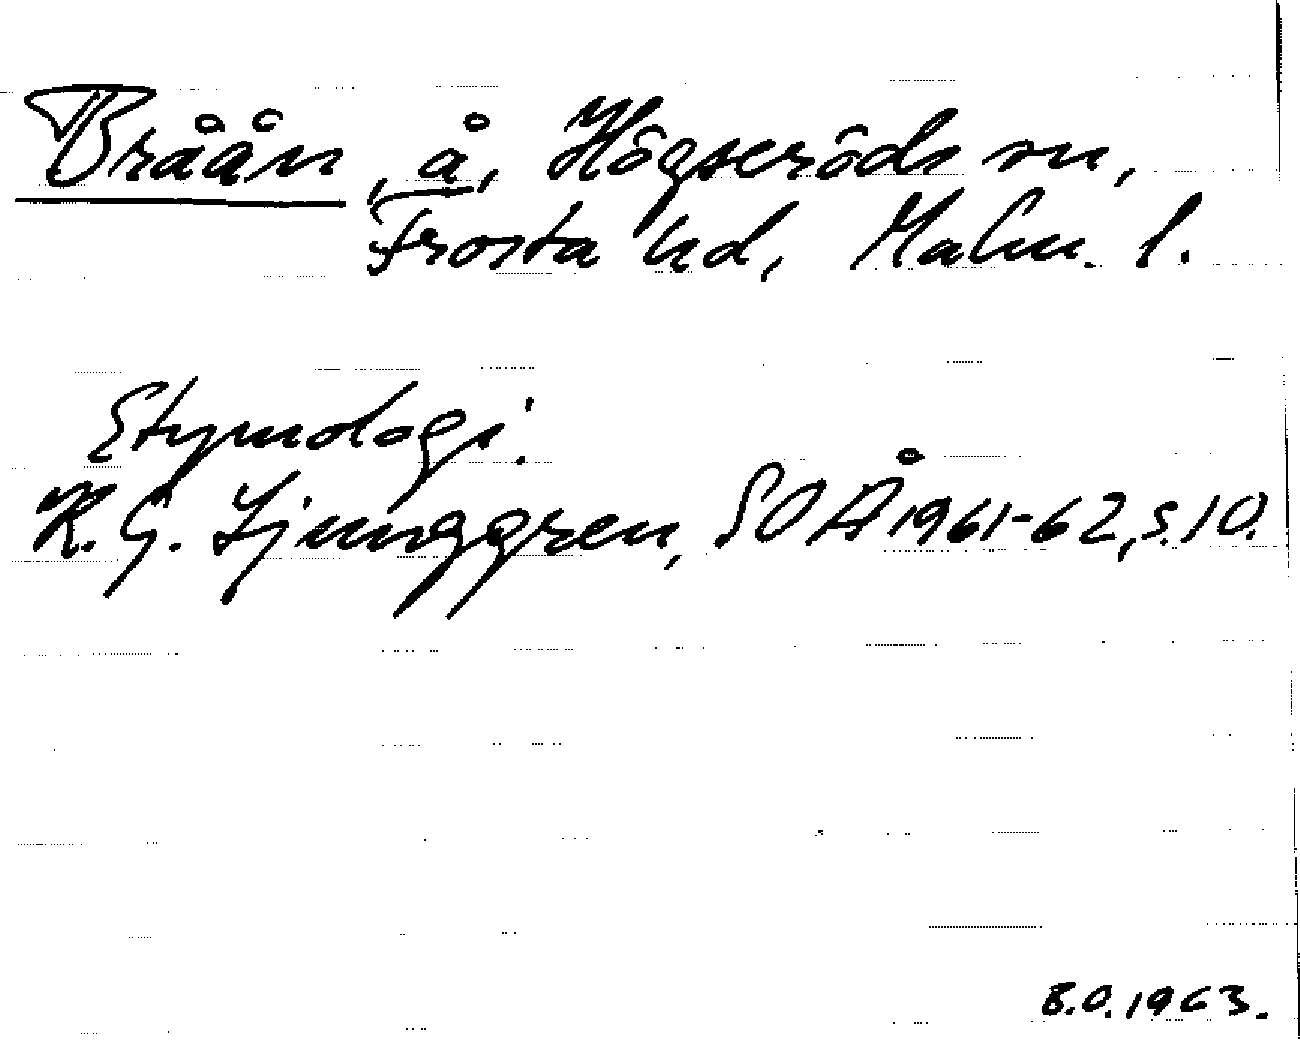 Bråån, å, Högseröds sn,
Frosta hd, Malm. l.
Etymologi.
K. G. Ljunggren, SOÅ 1961-62, s. 10.
B.O. 1963.